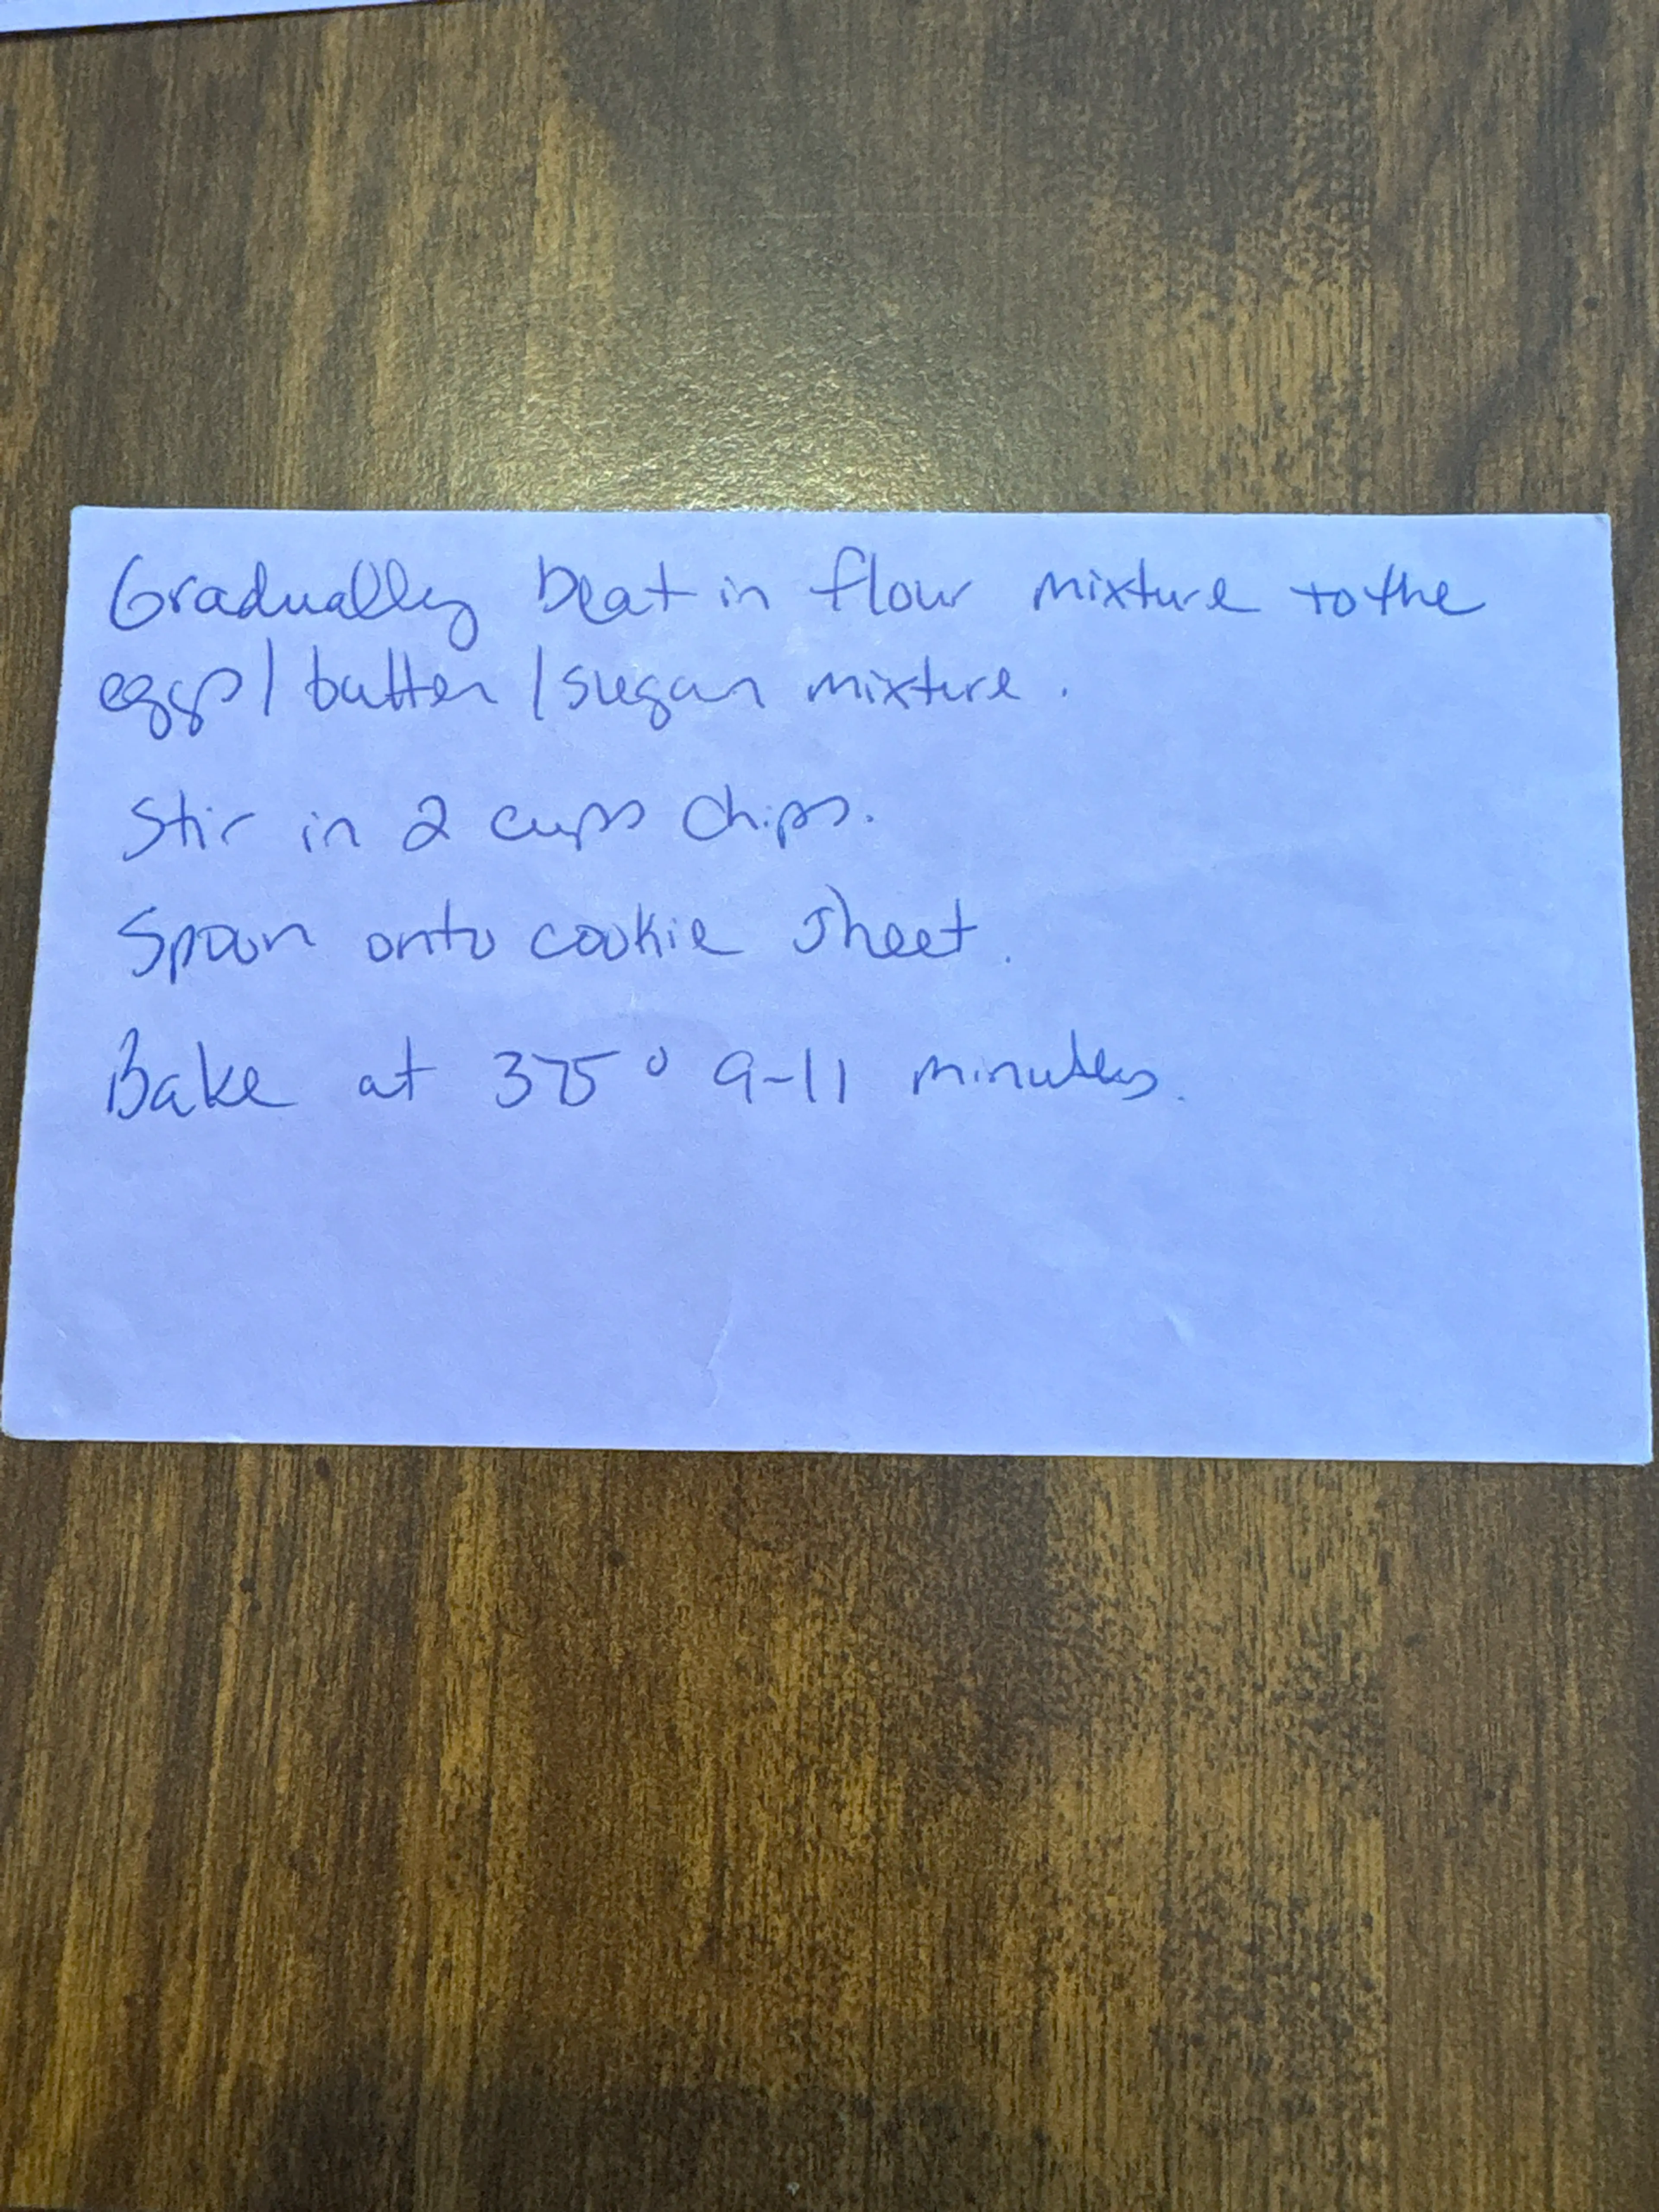 Gradually beat in flour mixture to the
eggs/butter/sugar mixture.
Stir in 2 cups chips.
Spoon onto cookie sheet.
Bake at 375° 9-11 minutes.